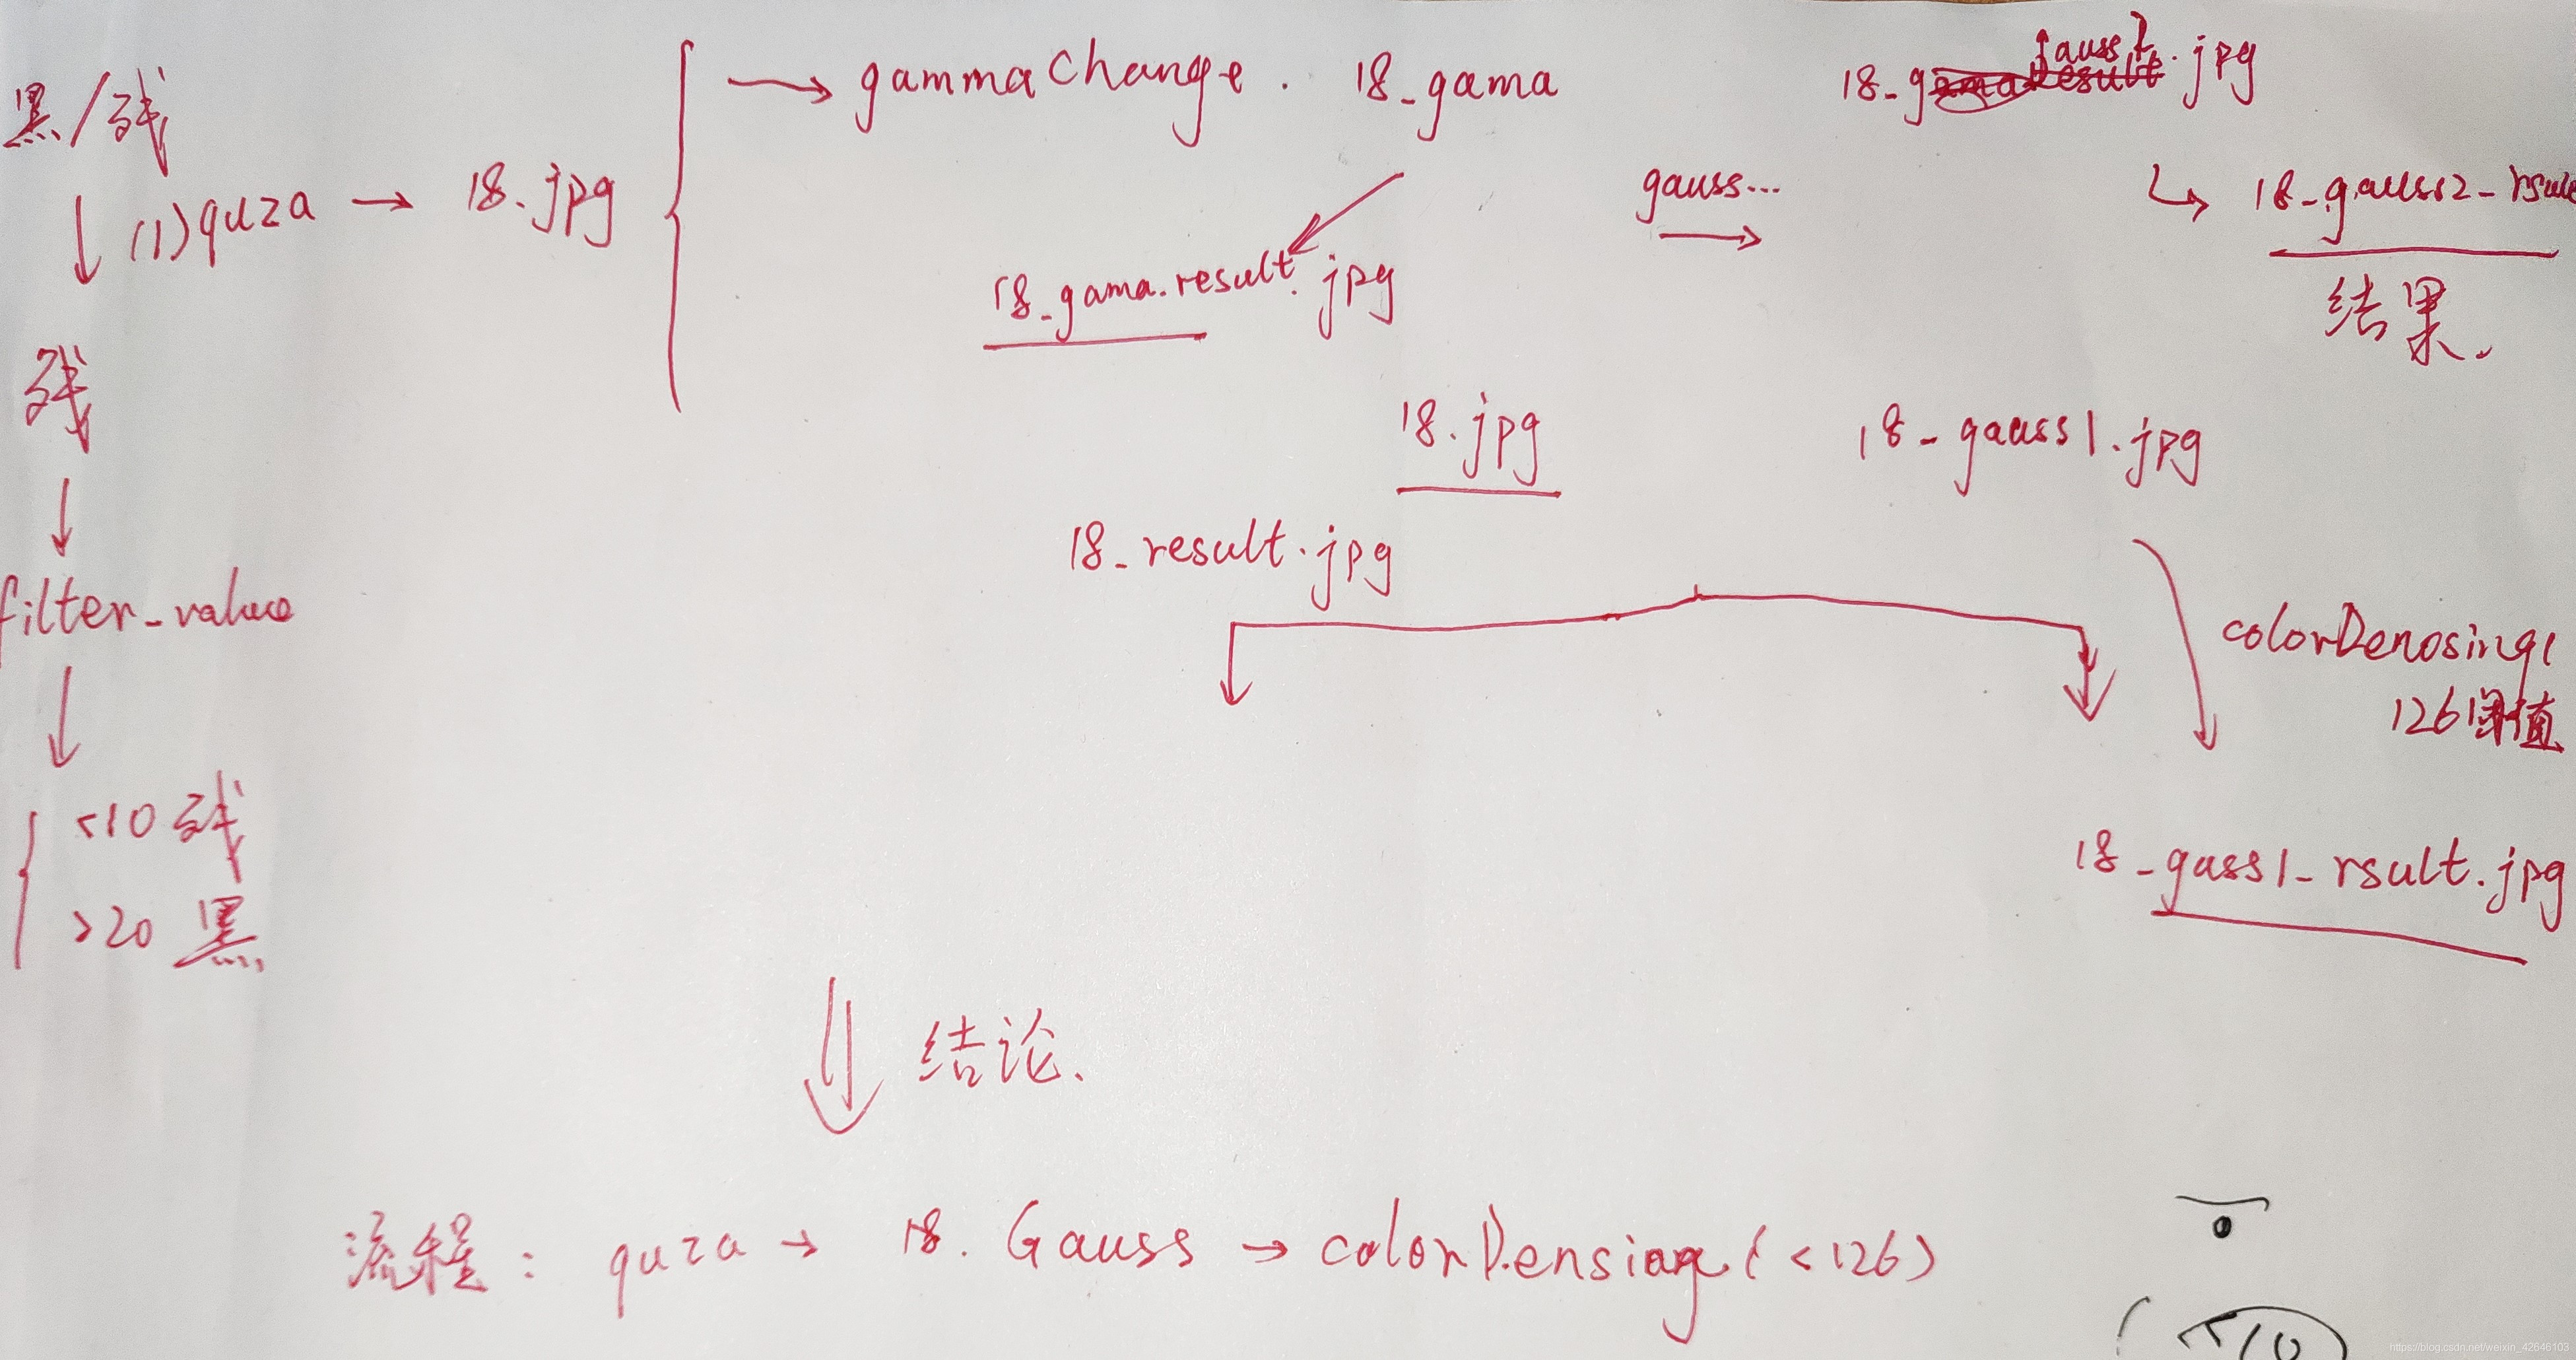 黑/残
↓ (1) quza → 18.jpg
→ gammaChange. 18_gama
18_gama.result.jpg
gauss...
→
18_gauss2.jpg
↳ 18_gauss2_rsul
结果.
残
↓
filter_value
↓
<10 残
>20 黑
18.jpg
18_result.jpg
18-gauss1.jpg
colorDenosing(
126阈值
18_gass1_rsult.jpg
⇓ 结论.
流程: quza → 18. Gauss → colorDensing (<126)
<10
https://blog.csdn.net/weixin_42646103